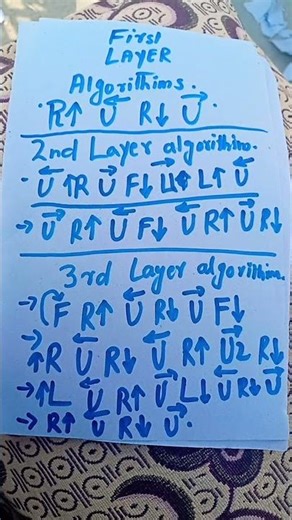 First
LAYER
Algorithims.
·R↑ U⃖ R↓ U⃗
2nd Layer algorithms.
·U⃖ ↑R U⃗ F↓ U⃗ L↑ U⃖
→ U⃗ R↑ U⃖ F↓ U⃖ R↑ U⃗ R↓
3rd Layer algorithms.
→ (F⃖ R↑ U⃖ R↓ U⃗ F↓
→
↑R U⃖ R↓ U⃖ R↑ U⃗2 R↓
→↑L U⃖ R↑ U⃗ L↓ U⃖ R↓ U⃗
→ R↑ U⃖ R↓ U⃗.